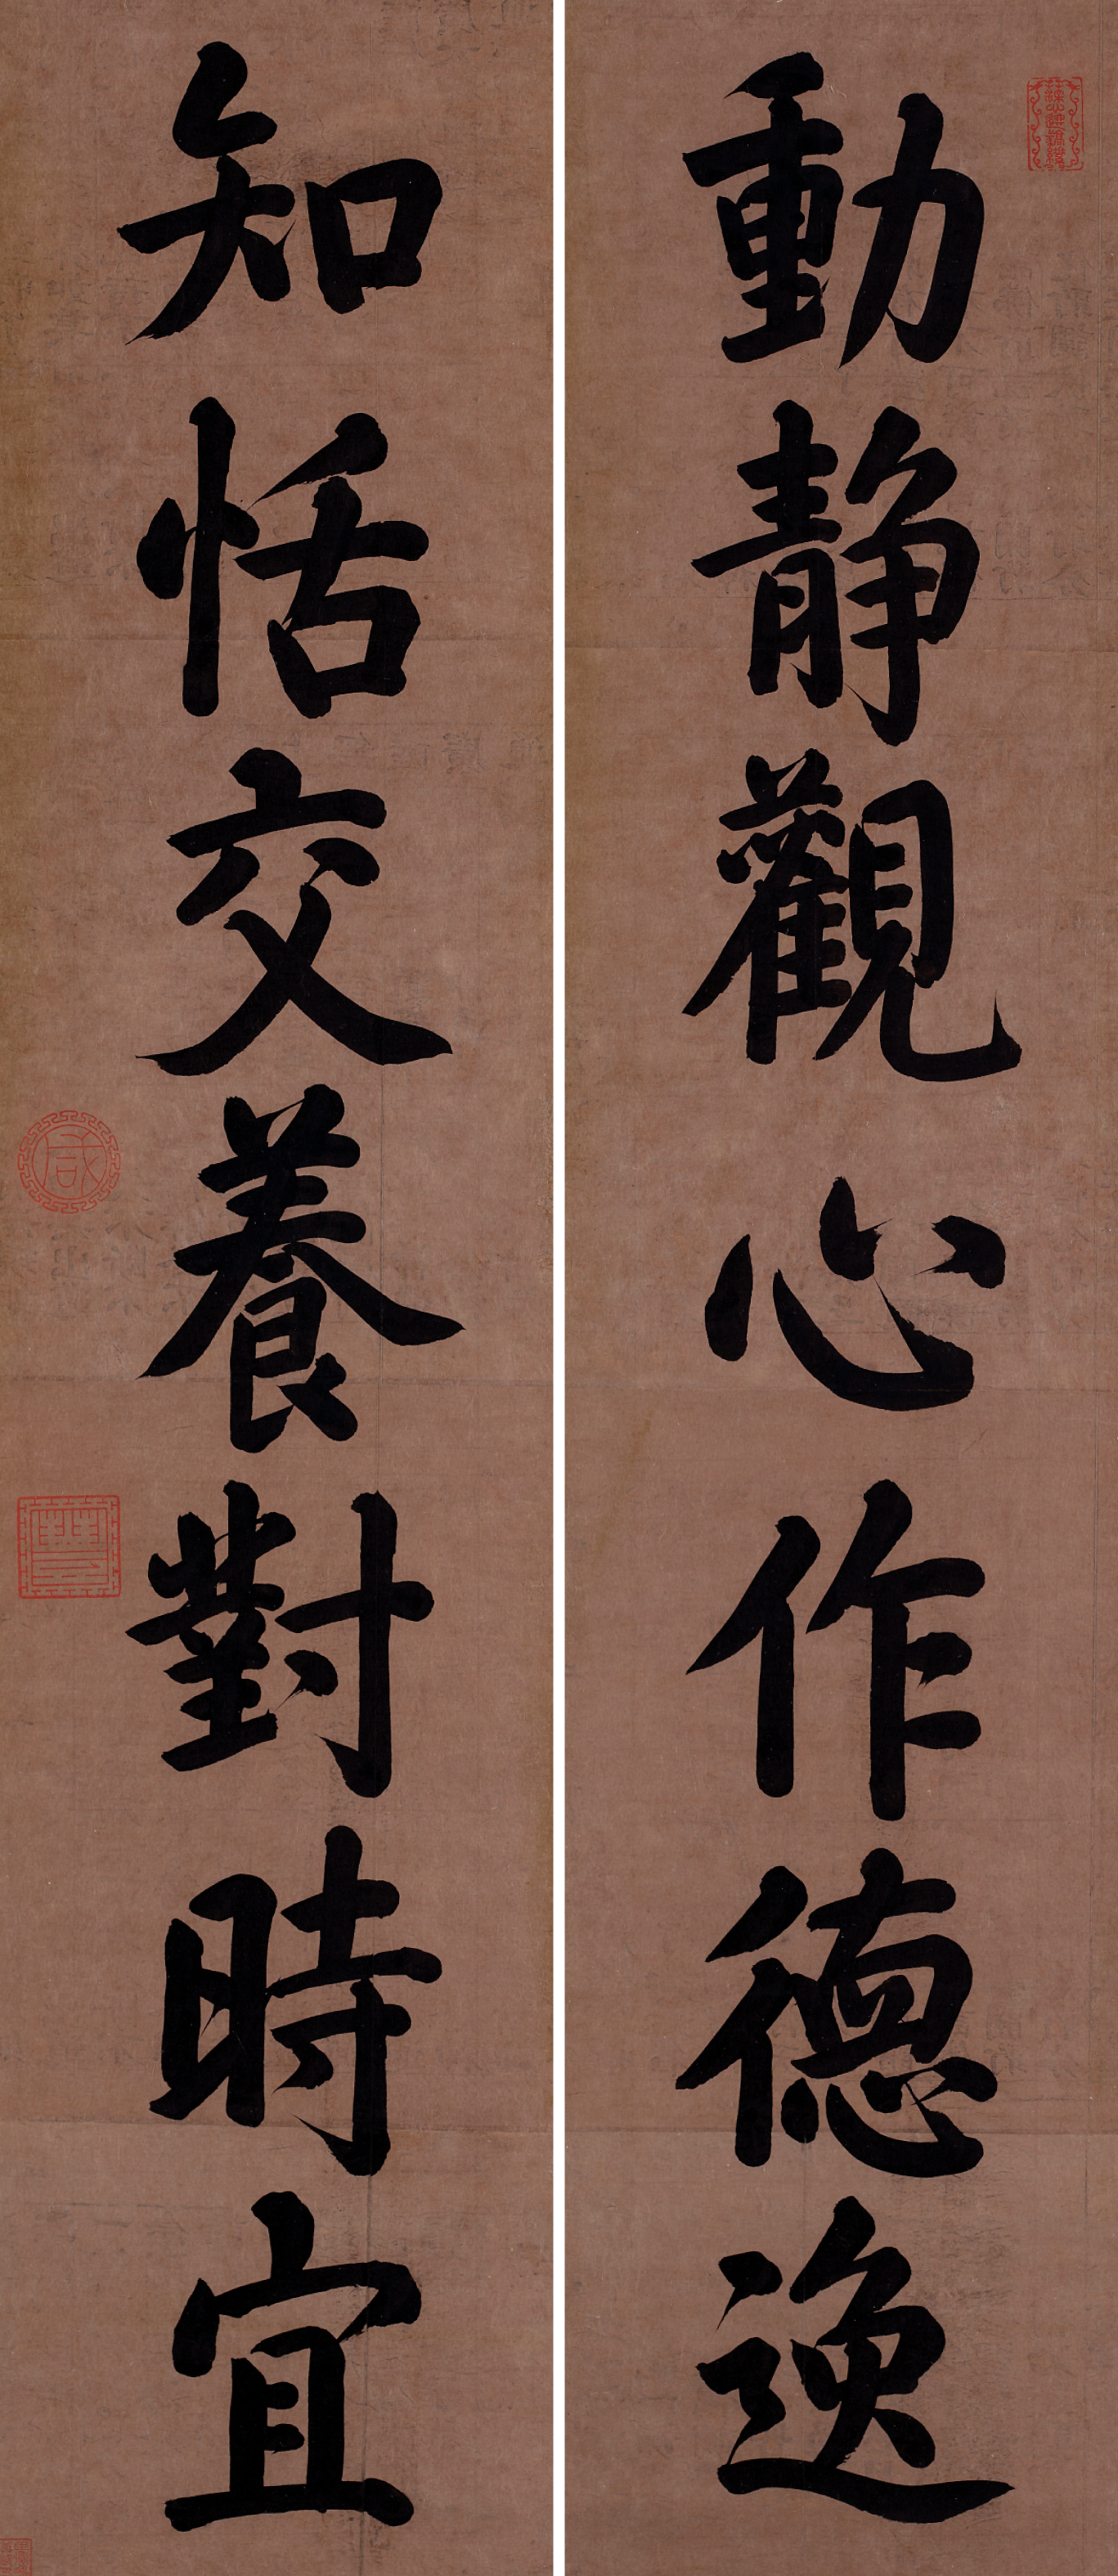 動靜觀心作德逸
知恬交養對時宜
咸
豐